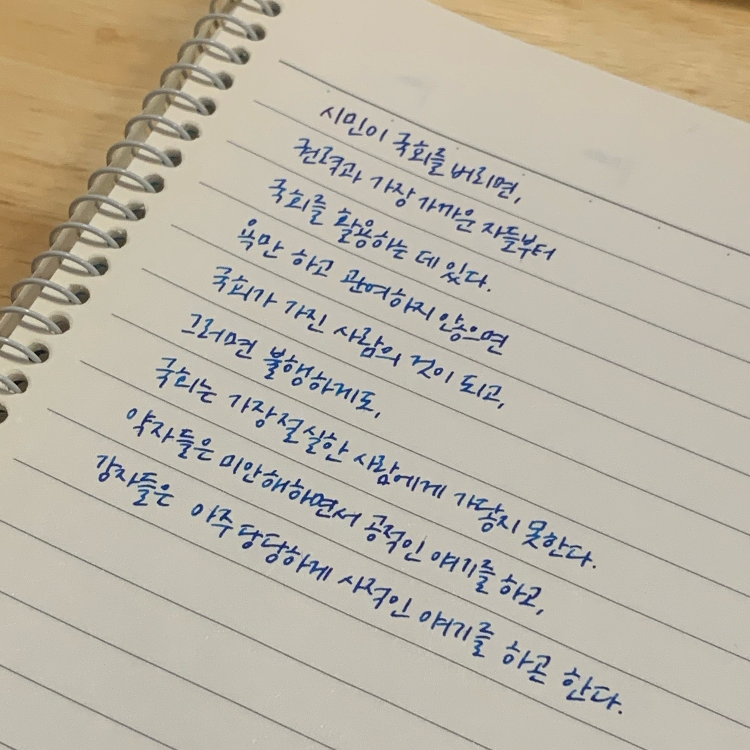 시민이 국회를 버리면,
권력과 가장 가까운 자들부터
국회를 활용하는 데 있다.
욕만 하고 관여하지 않으면
국회가 가진 사람의 것이 되고,
그러면 불행하게도,
국회는 가장 절실한 사람에게 가닿지 못한다.
약자들은 미안해하면서 공적인 얘기를 하고,
강자들은 아주 당당하게 사적인 얘기를 하곤 한다.